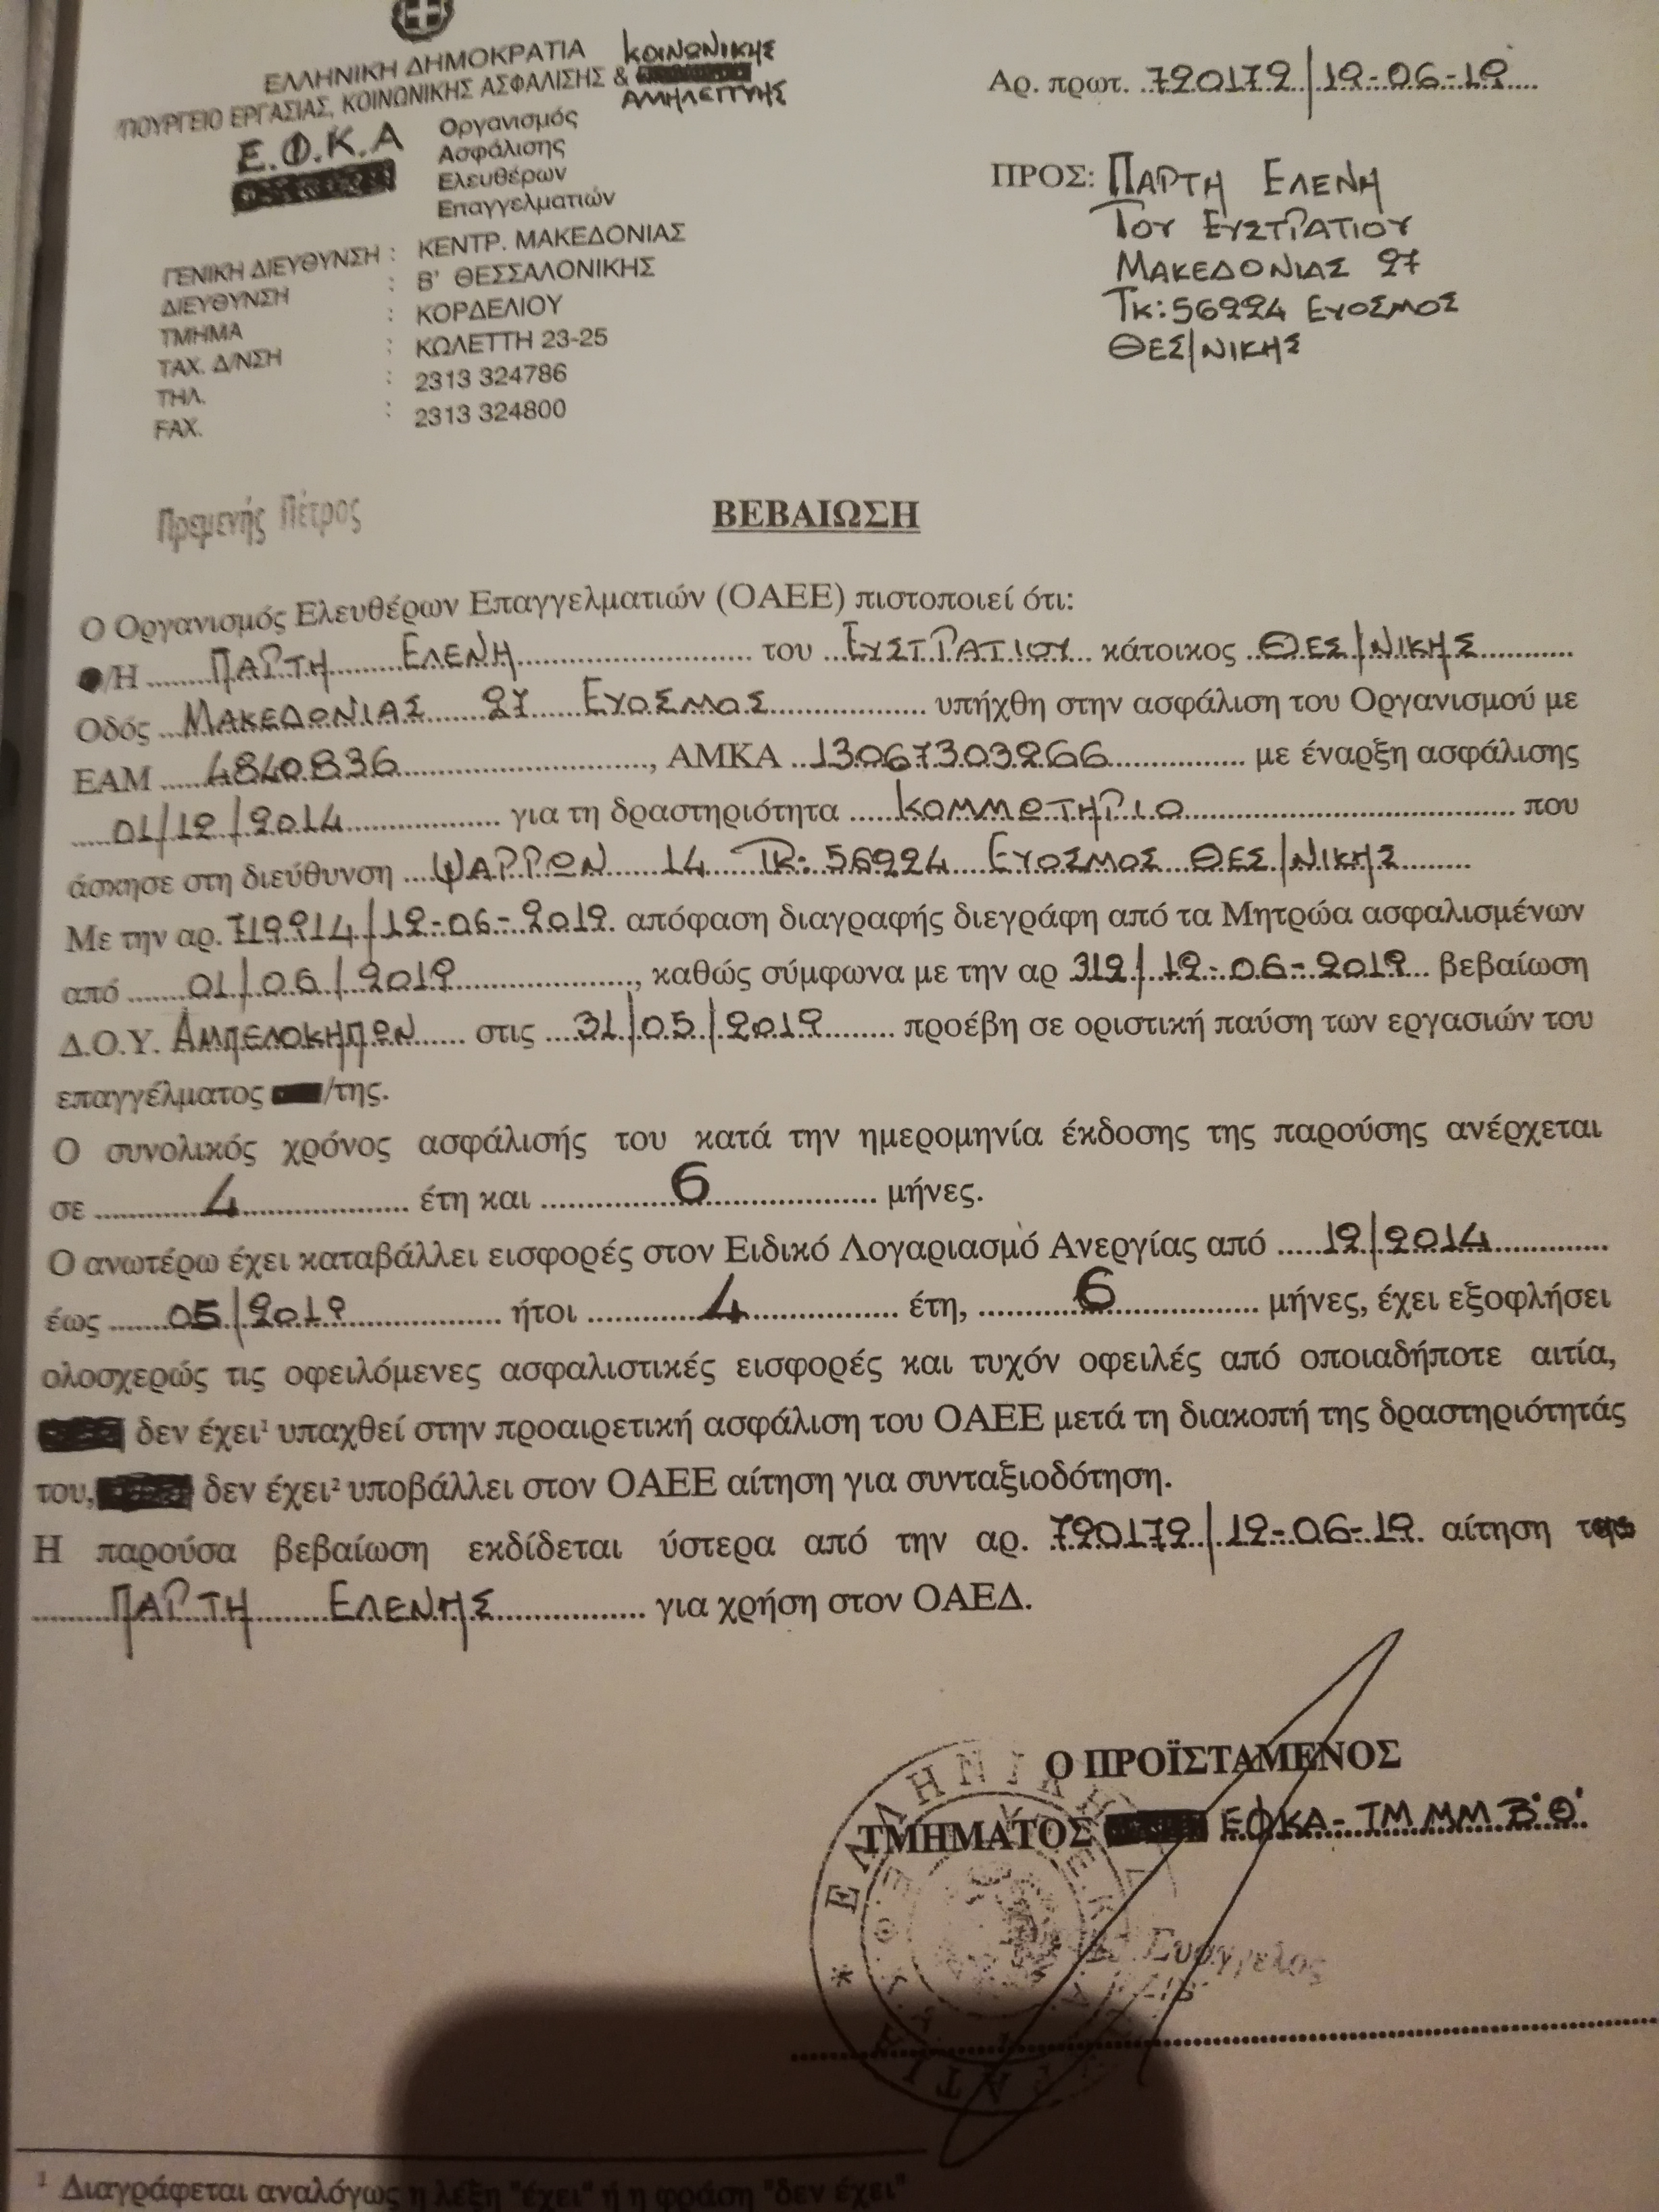 ΕΛΛΗΝΙΚΗ ΔΗΜΟΚΡΑΤΙΑ
ΥΠΟΥΡΓΕΙΟ ΕΡΓΑΣΙΑΣ, ΚΟΙΝΩΝΙΚΗΣ ΑΣΦΑΛΙΣΗΣ & ΚΟΙΝΩΝΙΚΗΣ
ΑΛΗΛΕΓΓΥΗΣ
Ε.Φ.Κ.Α
Οργανισμός
Ασφάλισης
Ελευθέρων
Επαγγελματιών
ΓΕΝΙΚΗ ΔΙΕΥΘΥΝΣΗ : ΚΕΝΤΡ. ΜΑΚΕΔΟΝΙΑΣ
ΔΙΕΥΘΥΝΣΗ : Β' ΘΕΣΣΑΛΟΝΙΚΗΣ
ΤΜΗΜΑ : ΚΟΡΔΕΛΙΟΥ
ΤΑΧ. Δ/ΝΣΗ : ΚΩΛΕΤΤΗ 23-25
ΤΗΛ. : 2313 324786
FAX. : 2313 324800
Αρ. πρωτ. 720172/12-06-19
ΠΡΟΣ: ΠΑΡΤΗ ΕΛΕΝΗ
ΤΟΥ ΕΥΣΤΡΑΤΙΟΥ
ΜΑΚΕΔΟΝΙΑΣ 27
ΤΚ: 56224 ΕΥΟΣΜΟΣ
ΘΕΣ/ΝΙΚΗΣ
Πρεμενής Πέτρος
ΒΕΒΑΙΩΣΗ
Ο Οργανισμός Ελευθέρων Επαγγελματιών (ΟΑΕΕ) πιστοποιεί ότι:
/Η ΠΑΡΤΗ ΕΛΕΝΗ του ΕΥΣΤΡΑΤΙΟΥ κάτοικος ΘΕΣ/ΝΙΚΗΣ
Οδός ΜΑΚΕΔΟΝΙΑΣ 27 ΕΥΟΣΜΟΣ υπήχθη στην ασφάλιση του Οργανισμού με
ΕΑΜ 4840836, ΑΜΚΑ 13067303266 με έναρξη ασφάλισης
01/12/2014 για τη δραστηριότητα ΚΟΜΜΩΤΗΡΙΟ που
άσκησε στη διεύθυνση ΨΑΡΡΩΝ 14 ΤΚ: 56224 ΕΥΟΣΜΟΣ ΘΕΣ/ΝΙΚΗΣ
Με την αρ. 719914/12-06-2019 απόφαση διαγραφής διεγράφη από τα Μητρώα ασφαλισμένων
από 01/06/2019, καθώς σύμφωνα με την αρ 312/12-06-2019 βεβαίωση
Δ.Ο.Υ. ΑΜΠΕΛΟΚΗΠΩΝ στις 31/05/2019 προέβη σε οριστική παύση των εργασιών του
επαγγέλματος /της.
Ο συνολικός χρόνος ασφάλισής του κατά την ημερομηνία έκδοσης της παρούσης ανέρχεται
σε 4 έτη και 6 μήνες.
Ο ανωτέρω έχει καταβάλλει εισφορές στον Ειδικό Λογαριασμό Ανεργίας από 12/2014
έως 05/2019 ήτοι 4 έτη, 6 μήνες, έχει εξοφλήσει
ολοσχερώς τις οφειλόμενες ασφαλιστικές εισφορές και τυχόν οφειλές από οποιαδήποτε αιτία,
δεν έχει¹ υπαχθεί στην προαιρετική ασφάλιση του ΟΑΕΕ μετά τη διακοπή της δραστηριότητάς
του, δεν έχει² υποβάλλει στον ΟΑΕΕ αίτηση για συνταξιοδότηση.
Η παρούσα βεβαίωση εκδίδεται ύστερα από την αρ. 720172/12-06-19 αίτηση της
ΠΑΡΤΗ ΕΛΕΝΗΣ για χρήση στον ΟΑΕΔ.
Ο ΠΡΟΪΣΤΑΜΕΝΟΣ
ΤΜΗΜΑΤΟΣ ΕΦΚΑ - ΤΜ ΜΜ Β'Θ'
Ευάγγελος
¹ Διαγράφεται αναλόγως η λέξη "έχει" ή η φράση "δεν έχει"